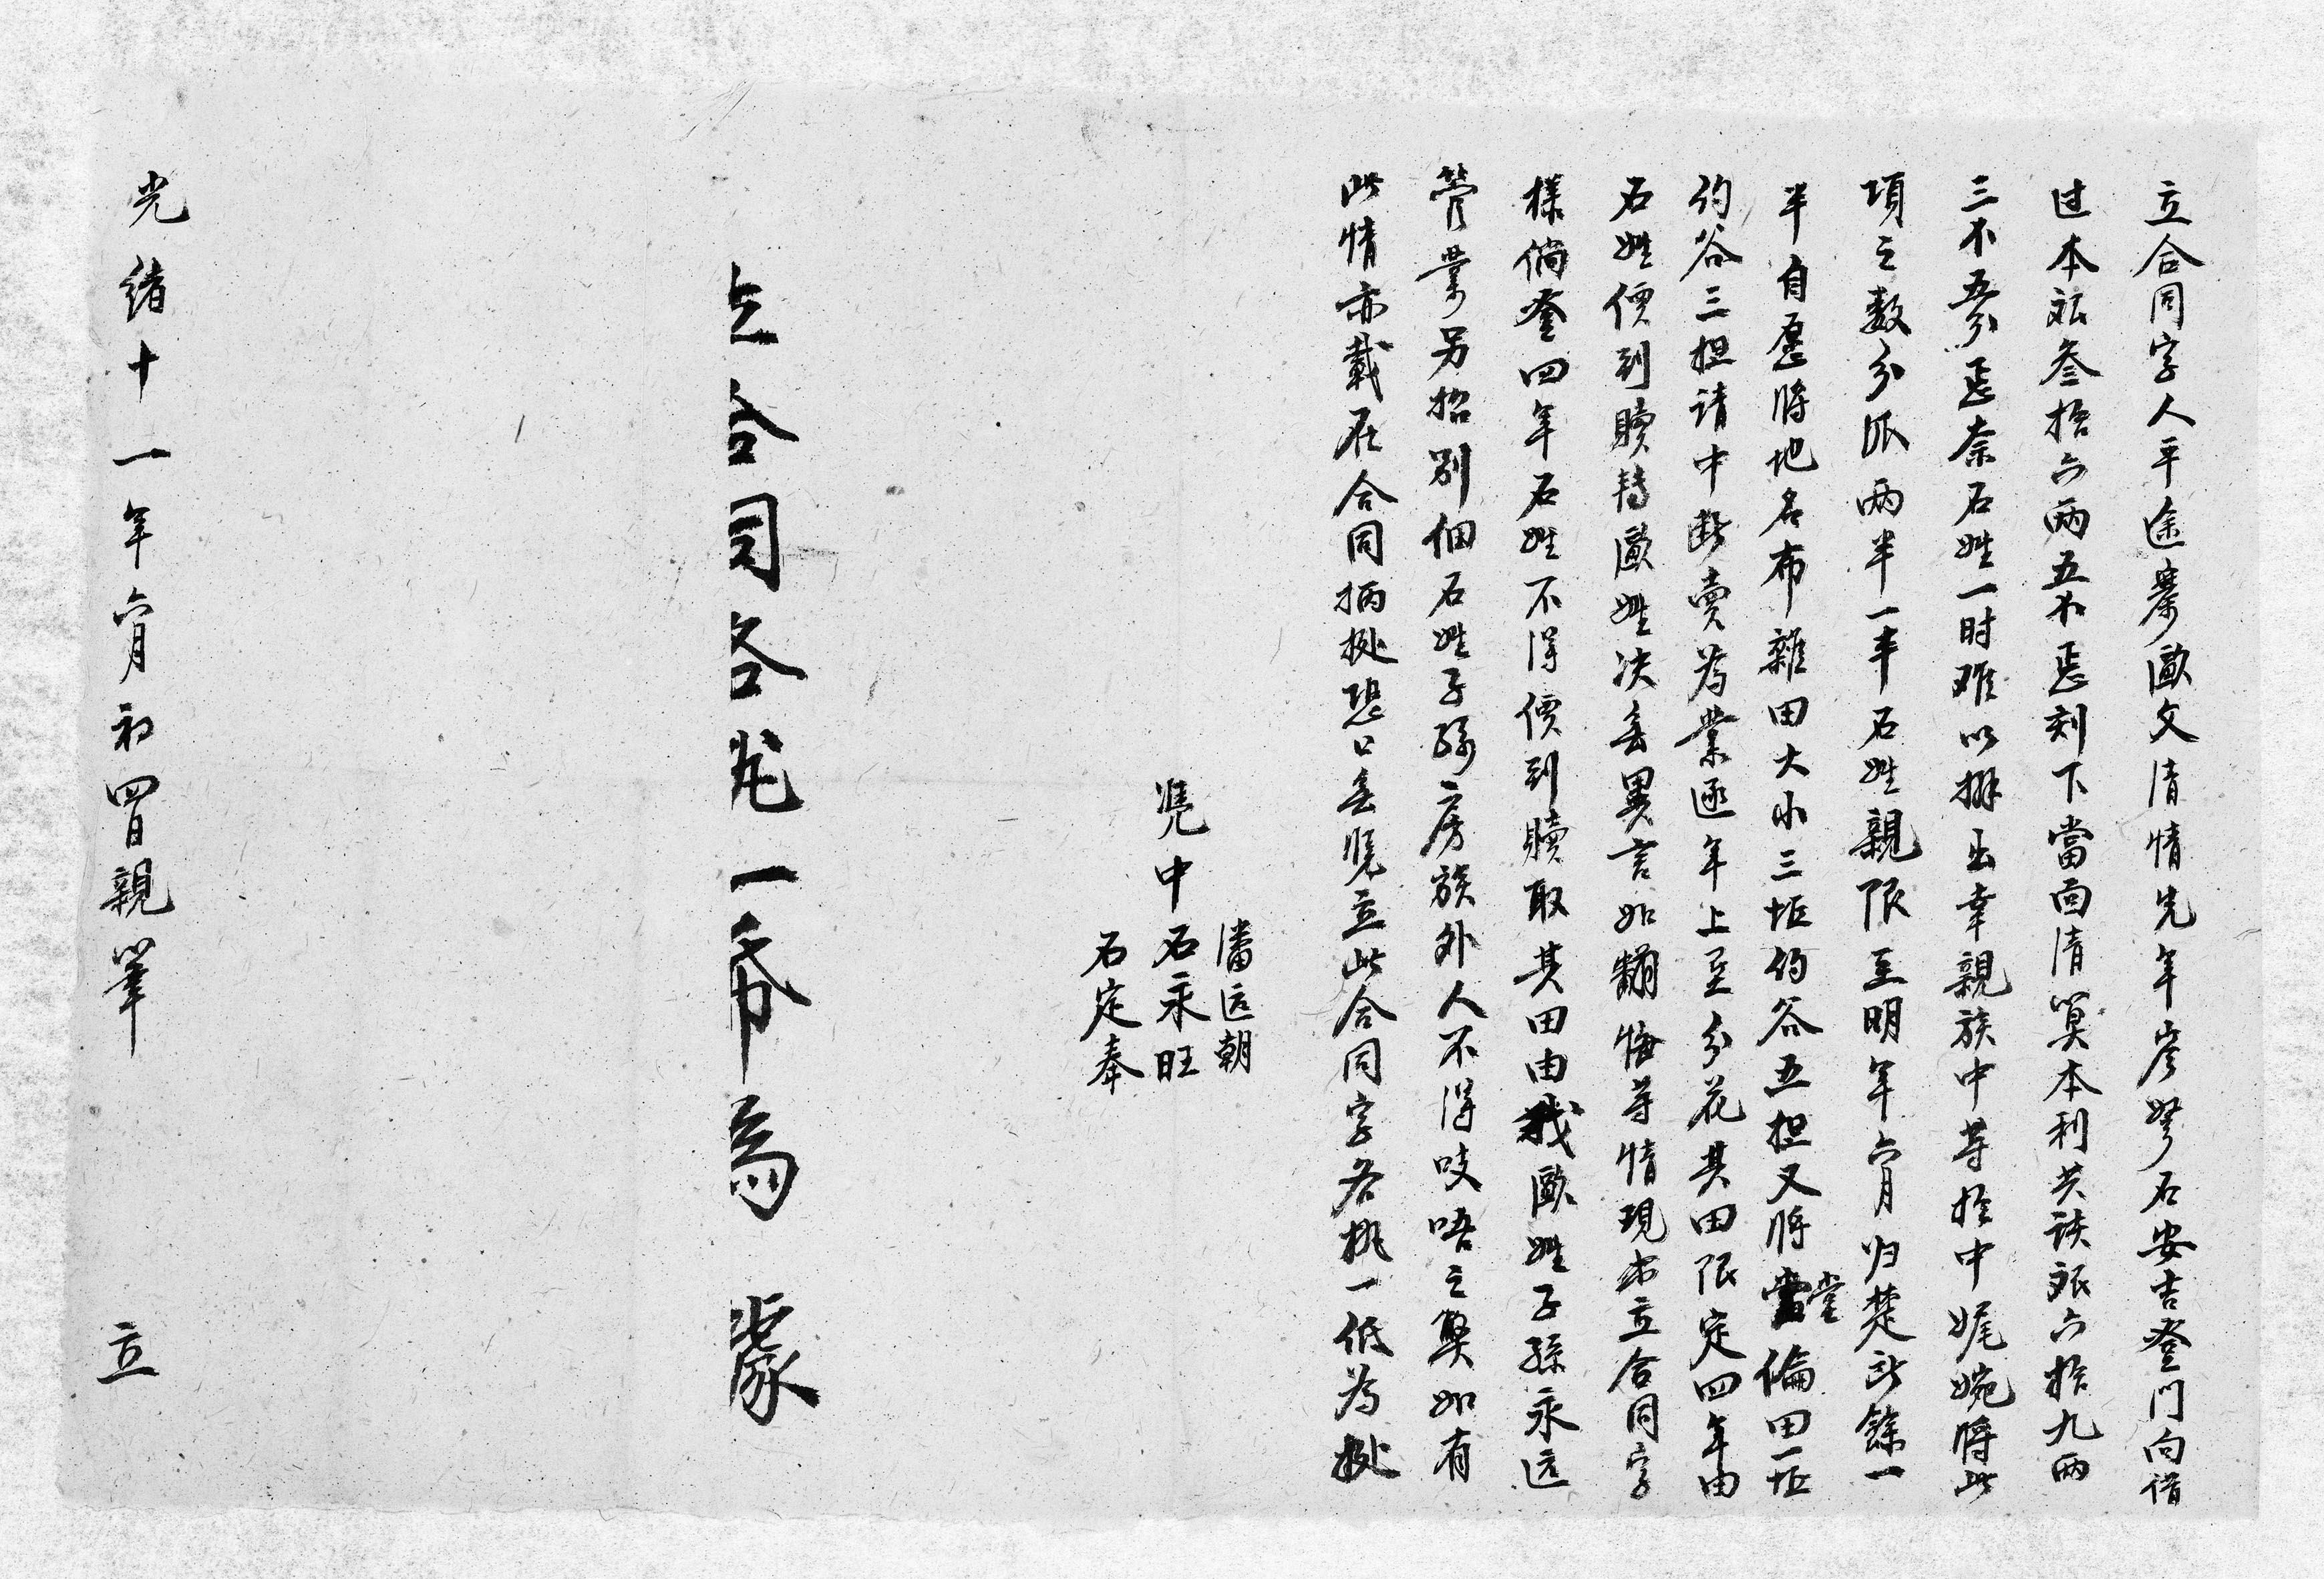 立合同字人平途寨歐文清情先年岩努石安吉登門向借
过本艮叁拾六两五不恁刻下當面清算本利共該艮六拾九两
三不五分恁奈石姓一时难以撥出幸親族中等於中娓婉將此
項之数分派两半一半石姓親限至明年六月归楚所餘一
半自愿將地名布雜田大小三坵約谷五担又將堂倫田一坵
約谷三担请中断賣為業逐年上至分花其田限定四年由
石姓價到贖转歐姓决無異言如翻悔等情現出立合同字
樣倘登四年石姓不得價到贖取其田由我歐姓子孫永远
管業另招别佃石姓子孫房族外人不得吱唔之獘如有
此情亦載在合同炳㨿恐口無凭立此合同字各执一低為㨿
潘远朝
凭中石永旺
石定奉
立合同各光一帋為㨿
光绪十一年六月初四日親筆 立